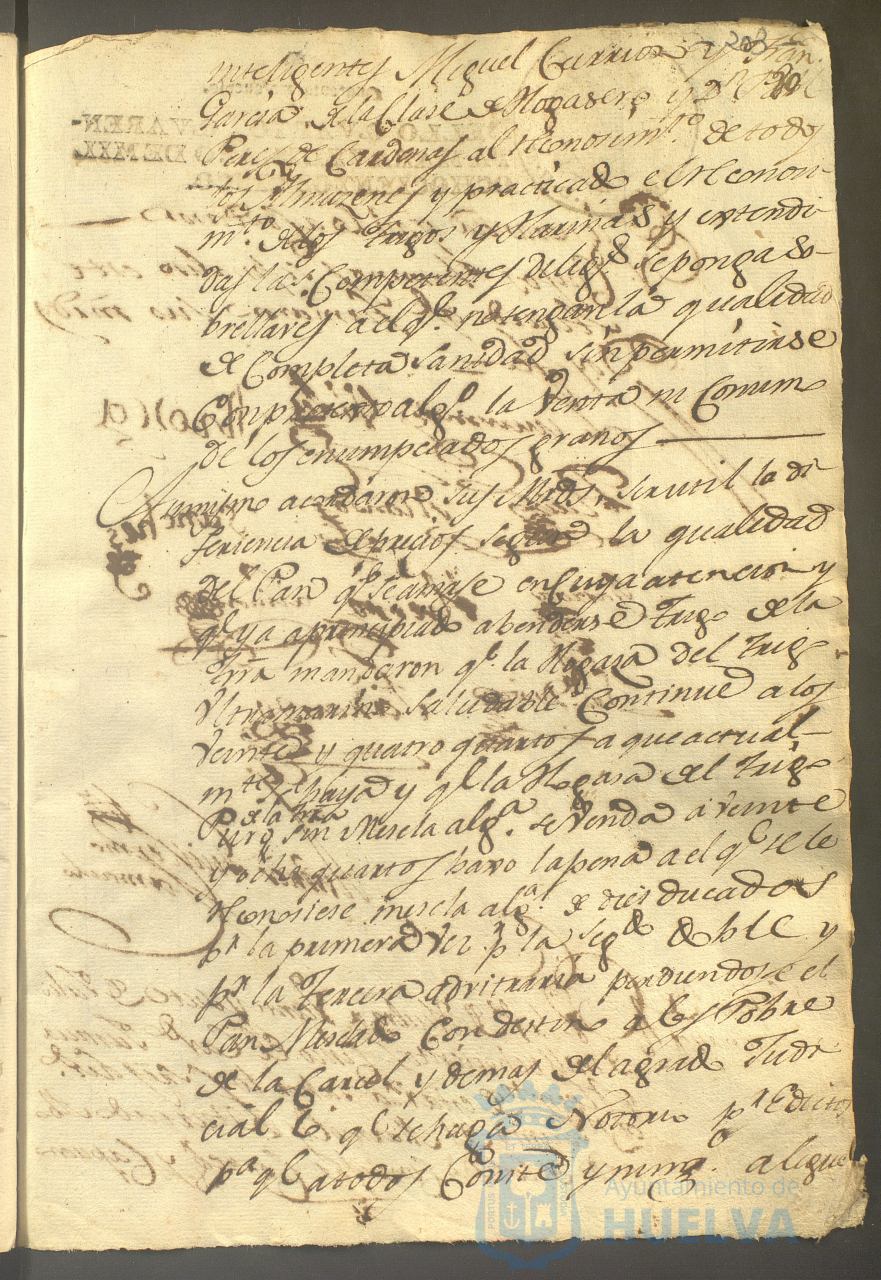 inteligentes Miguel Carrion y Fran.
208
20
Garcia de la Clase de Hogasero y Dn
Perez de Cardenas al reconosimto. de todos
los Almazenes y practicado el reconosi-
mto. de los Trigos y Harinas y extendi
das las Competentes delig.s se ponga so-
brellaves a el q.e no tengan la qualidad
de Completa sanidad sin permitirse
Con pretexto algo la Venta ni Consumo
de los enumperados granos
Asimismo acordaron sus Mrds. ser util la di
feriencia de precios segun la qualidad
del Pan q.e se amase en Cuya atencion y
q.e ya a prinsipiado a benderse Trigo de la
trra mandaron q.e la Hogasa del Trigo
Ultramarino saludable Continue a los
Veinte y quatro quartos a que actual-
mte. se haya y q.e la Hogasa del Trigo
de la trra
Puro sin Mescla alg.a se Venda a veinte
y ocho quartos baxo la pena a el q.e se le
reconosiese mescla alg.a de dies ducados
pr la primera Vez pr la seg.da doble y
pr la Tercera advitraria perdiendose el
Pan Mesclado Con destino a los Pobre
de la Carcel y demas del agrado Judi
cial Lo q.e se haga Notorio pr Edictos
pa q.e a todos Conste y ning.o alegue
Ayuntamiento de
HUELVA